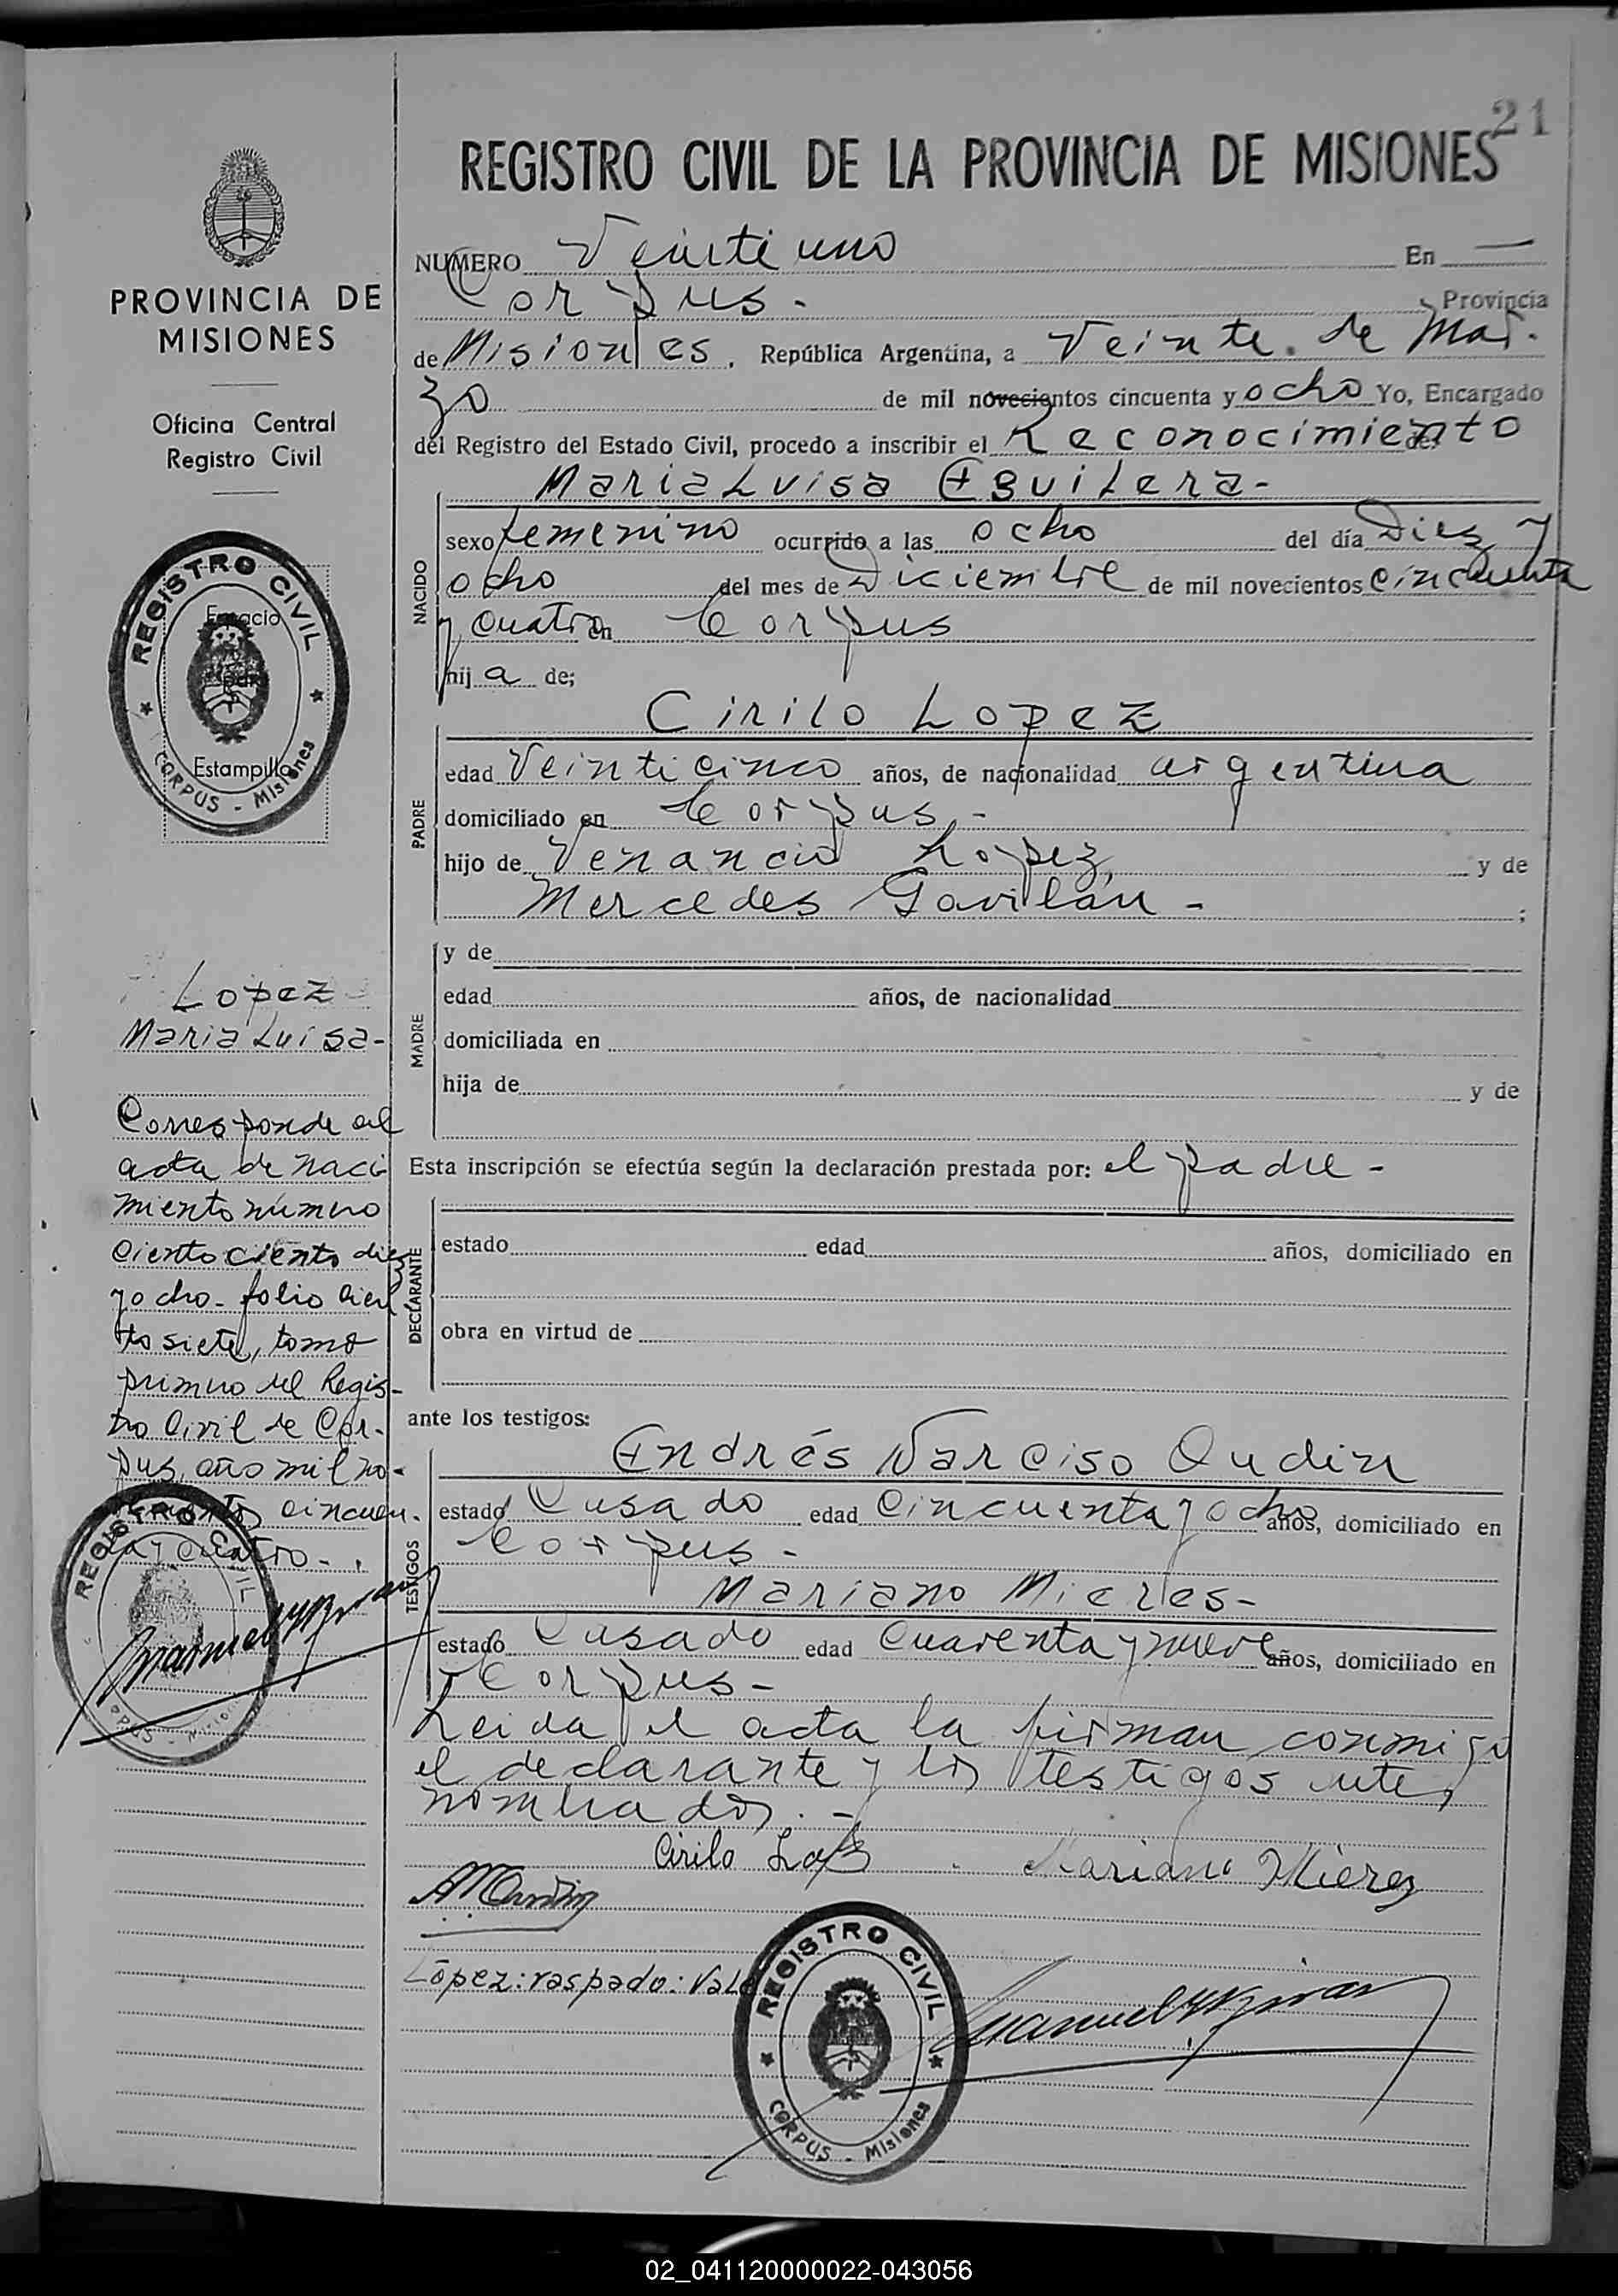 21
REGISTRO CIVIL DE LA PROVINCIA DE MISIONES
PROVINCIA DE
MISIONES
Oficina Central
Registro Civil
REGISTRO CIVIL
Espacio
para
Estampilla
CORPUS - Misiones
Lopez
Maria Luisa-
Corresponde al
acta de naci
miento número
ciento ciento diez
y ocho - folio cien
to siete, tomo
primero del Regis-
tro Civil de Cor-
pus, año mil no-
vecientos cincuen-
ta y cuatro - .
REGISTRO CIVIL
NUMERO Veinti uno En —
Corpus - Provincia
de Misiones, República Argentina, a Veinte de Mar-
zo de mil novecientos cincuenta y ocho Yo, Encargado
del Registro del Estado Civil, procedo a inscribir el Reconocimiento de
Maria Luisa Aguilera-
NACIDO
sexo femenino ocurrido a las ocho del día Diez y
ocho del mes de Diciembre de mil novecientos cincuenta
y cuatro en Corpus
hij a de;
PADRE
Cirilo Lopez
edad Veinticinco años, de nacionalidad argentina
domiciliado en Corpus -
hijo de Venancio Lopez, y de
Mercedes Gavilán - ;
MADRE
y de
edad años, de nacionalidad
domiciliada en
hija de y de
Esta inscripción se efectúa según la declaración prestada por: el padre -
DECLARANTE
estado edad años, domiciliado en
obra en virtud de
ante los testigos:
TESTIGOS
Andrés Narciso Oudin
estado Casado edad Cincuenta y ocho años, domiciliado en
Corpus -
Mariano Mieres-
estado Casado edad Cuarenta y nueve años, domiciliado en
Corpus -
Leida el acta la firman conmigo
el declarante y los testigos ante
nombrados. -
Cirilo Lopez Mariano Mieres
López: raspado: Vale
REGISTRO CIVIL
CORPUS - Misiones
02_041120000022-043056